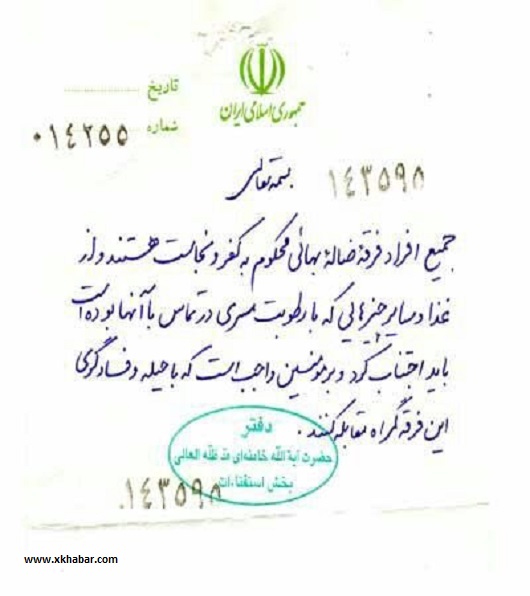 جمهوری اسلامی ایران
تاریخ ....................
شماره ۰۱۴۲۵۵
بسمه تعالی ۱۴۳۵۹۸
جمیع افراد فرقهٔ ضالهٔ بهائی محکوم به کفر و نجاست هستند و از
غذا و سایر چیزهایی که با رطوبت مسری در تماس با آنها بوده است
باید اجتناب کرد و بر مؤمنین واجب است که با حیله و فسادگری
این فرقهٔ گمراه مقابله کنند.
دفتر
حضرت آیة الله خامنه‌ای مد ظله العالی
بخش استفتاءات
۱۴۳۵۹۸
www.xkhabar.com